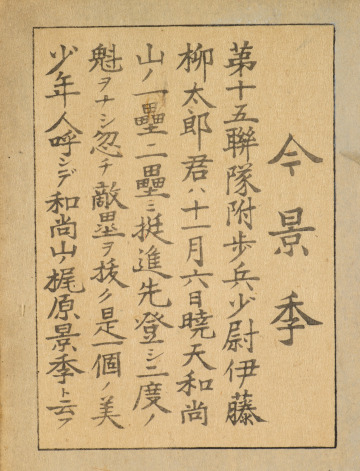 今景季
第十五聯隊附歩兵少尉伊藤
柳太郎君ハ十一月六日曉天和尚
山ノ一壘二壘ニ挺進先登シ二度ノ
魁ヲナシ忽チ敵壘ヲ拔ク是一個ノ美
少年人呼ンデ和尚山ノ梶原景季ト云フ